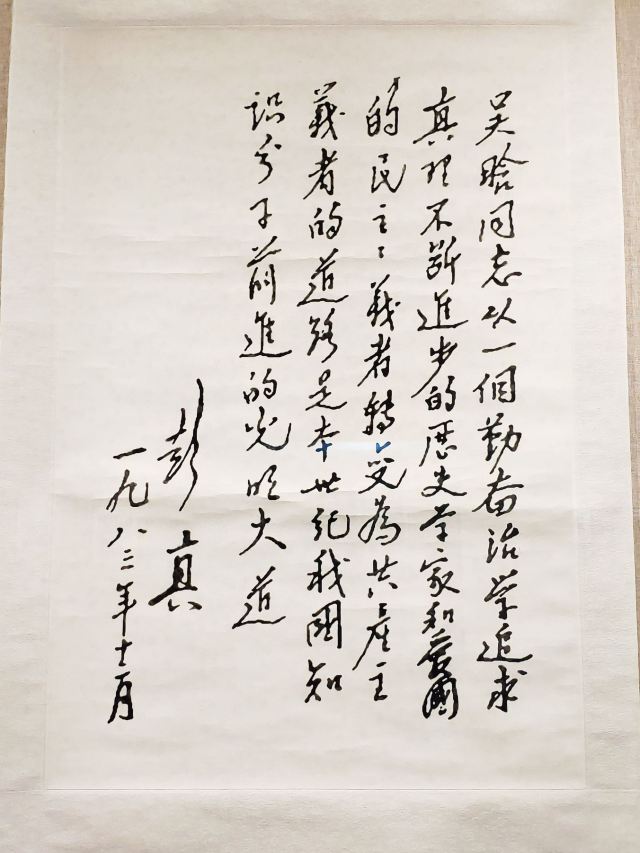 吴晗同志以一個勤奋治学追求
真理不断進步的历史学家和爱國
的民主主義者转变為共产主
義者的道路是本世纪我國知
识分子前進的光明大道
彭真
一九八三年十一月